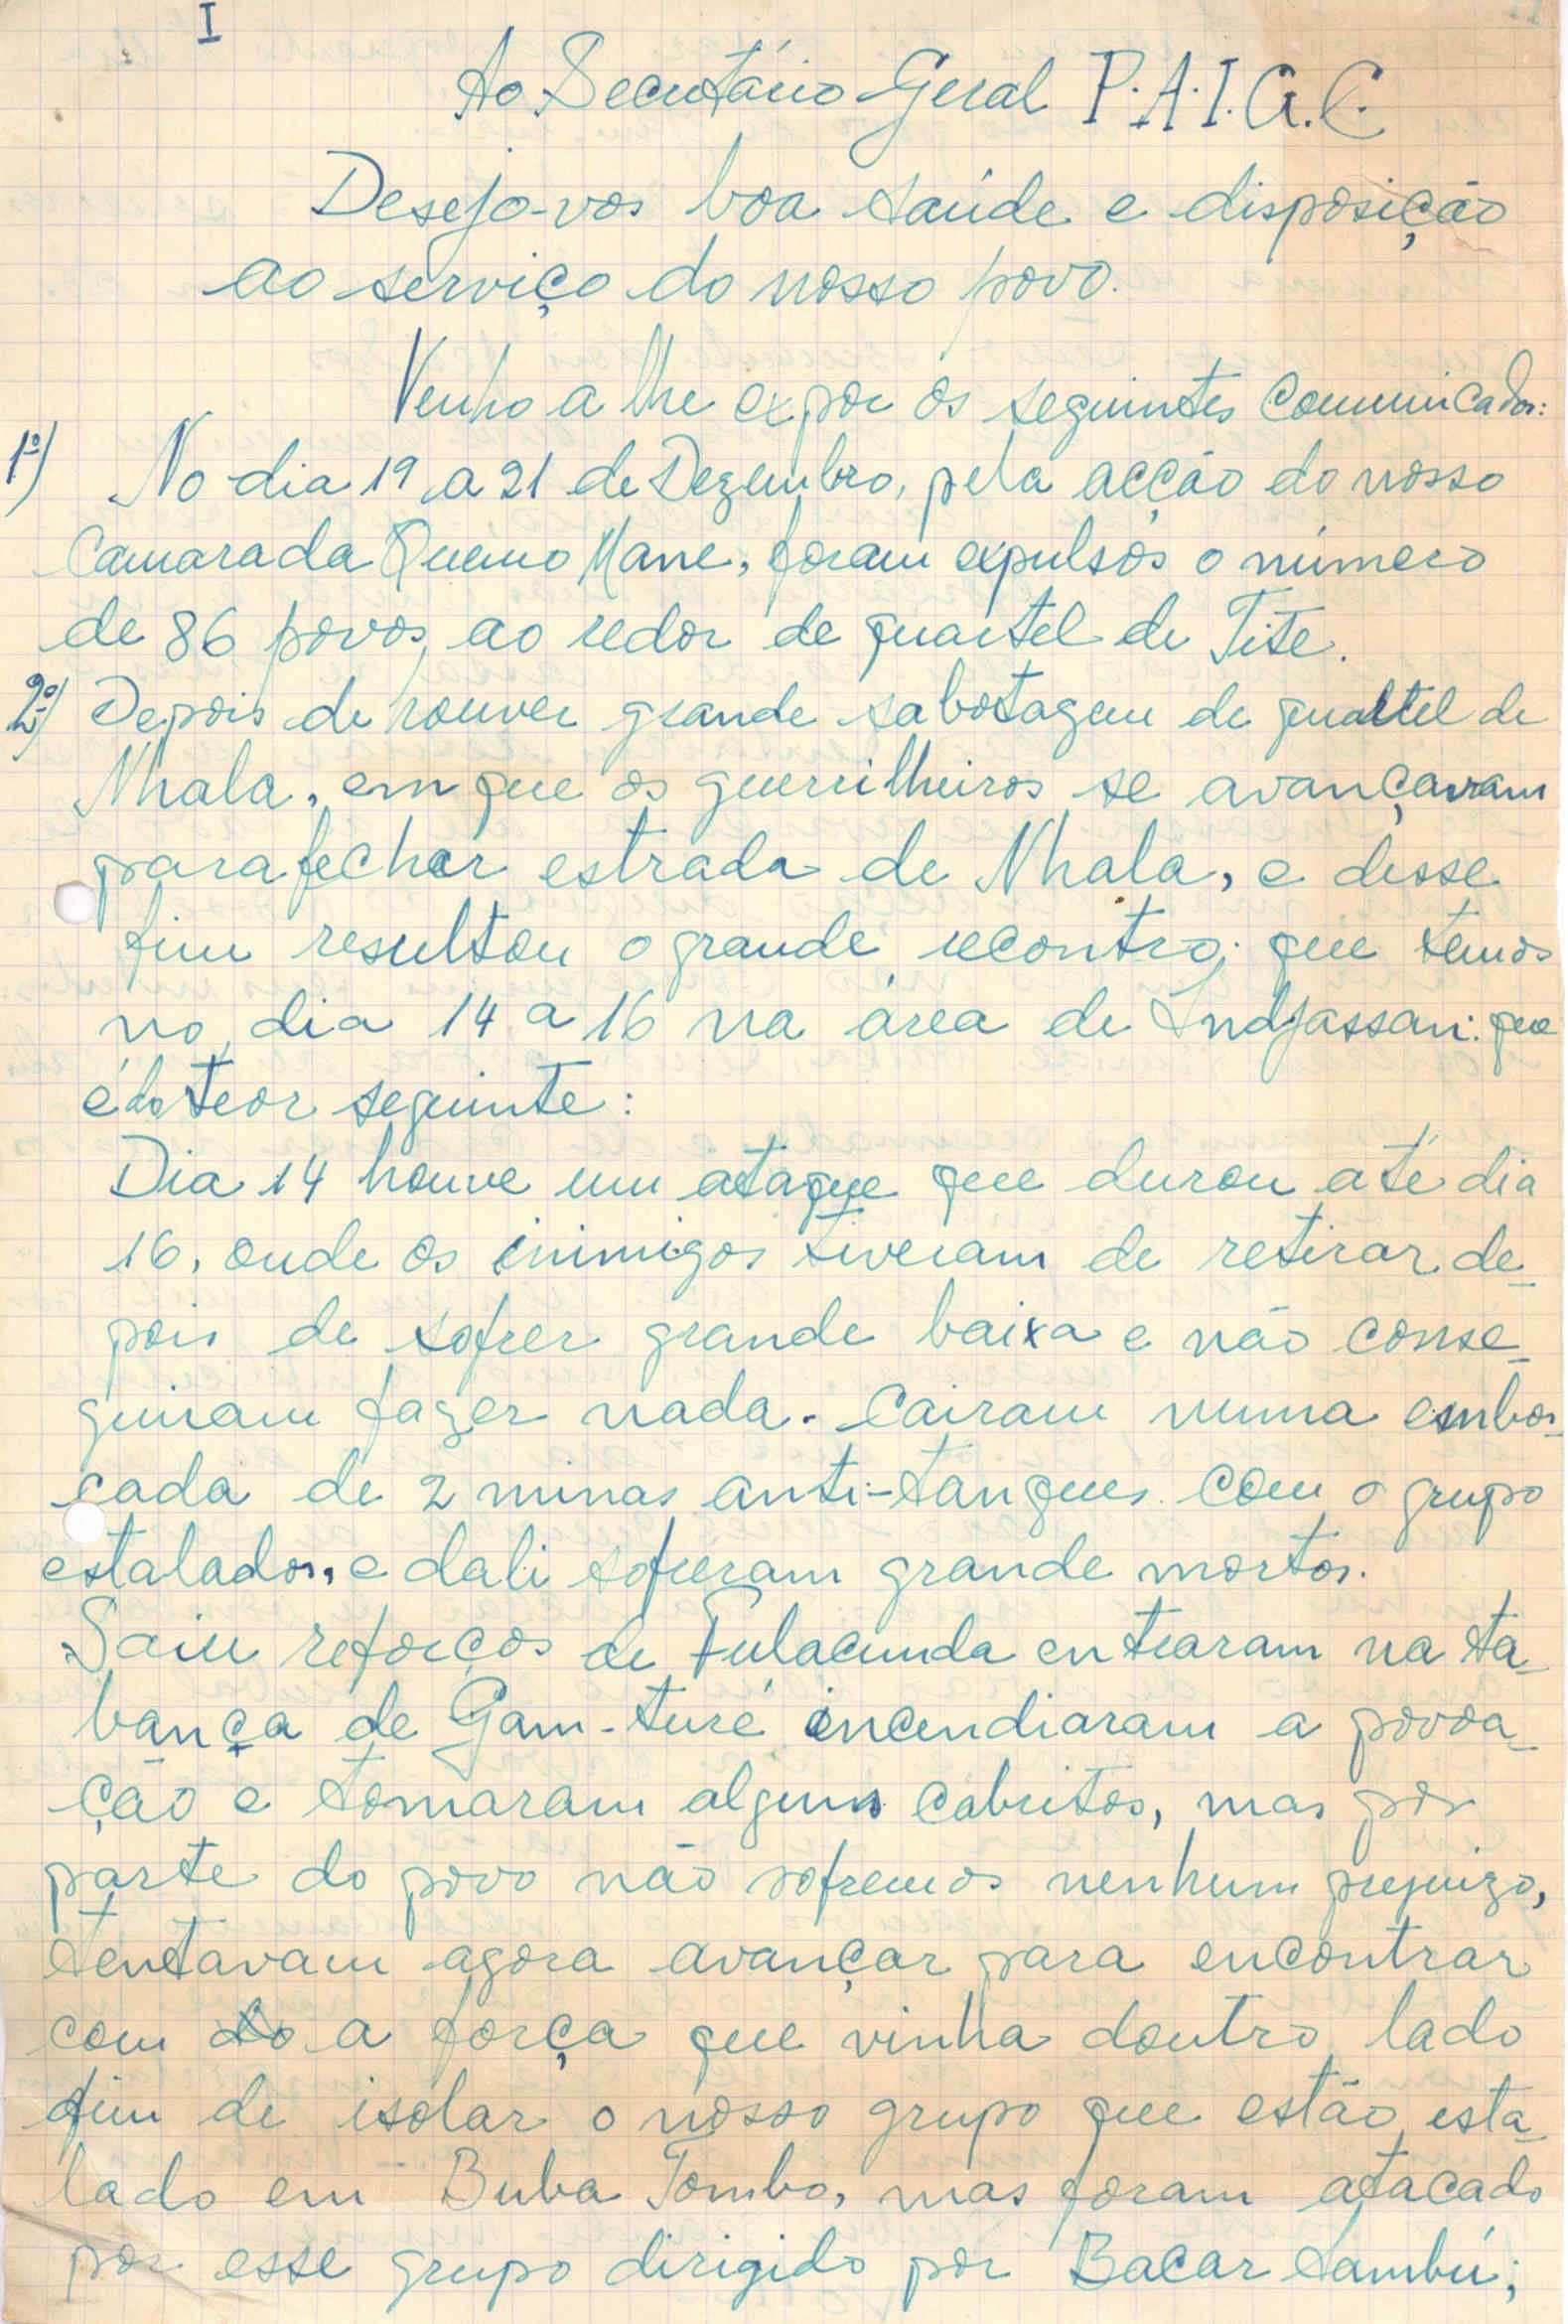 I
Ao Secretário Geral P.A.I.G.C.
Desejo-vos boa saúde e disposição
ao serviço do nosso povo.
Venho a lhe expor os seguintes Comunicados:
1º) No dia 19 a 21 de Dezembro, pela acção do nosso
Camarada Quemo Mane, foram expulsos o número
de 86 povos, ao redor de quartel de Tite.
2º) Depois de houver grande sabotagem de quartel de
Nhala, em que os guerrilheiros se avançavam
para fechar estrada de Nhala, e desse
fim resultou o grande recontro; que temos
no dia 14 a 16 na área de Indjassan: que
é do teor seguinte:
Dia 14 houve um ataque que durou até dia
16, onde os inimigos tiveram de retirar de-
pois de sofrer grande baixa e não conse-
guiram fazer nada. Cairam numa embos-
cada de 2 minas anti-tanques com o grupo
estalados, e dali sofreram grande mortos.
Saiu reforços de Fulacunda entraram na ta-
bança de Gam-turé incendiaram a povoa-
ção e tomaram alguns cabritos, mas por
parte do povo não sofremos nenhum prejuizo,
tentavam agora avançar para encontrar
com a força que vinha doutro lado
fim de isolar o nosso grupo que estão esta-
lado em Buba Tombo, mas foram atacado
por esse grupo dirigido por Bacar Sambú;